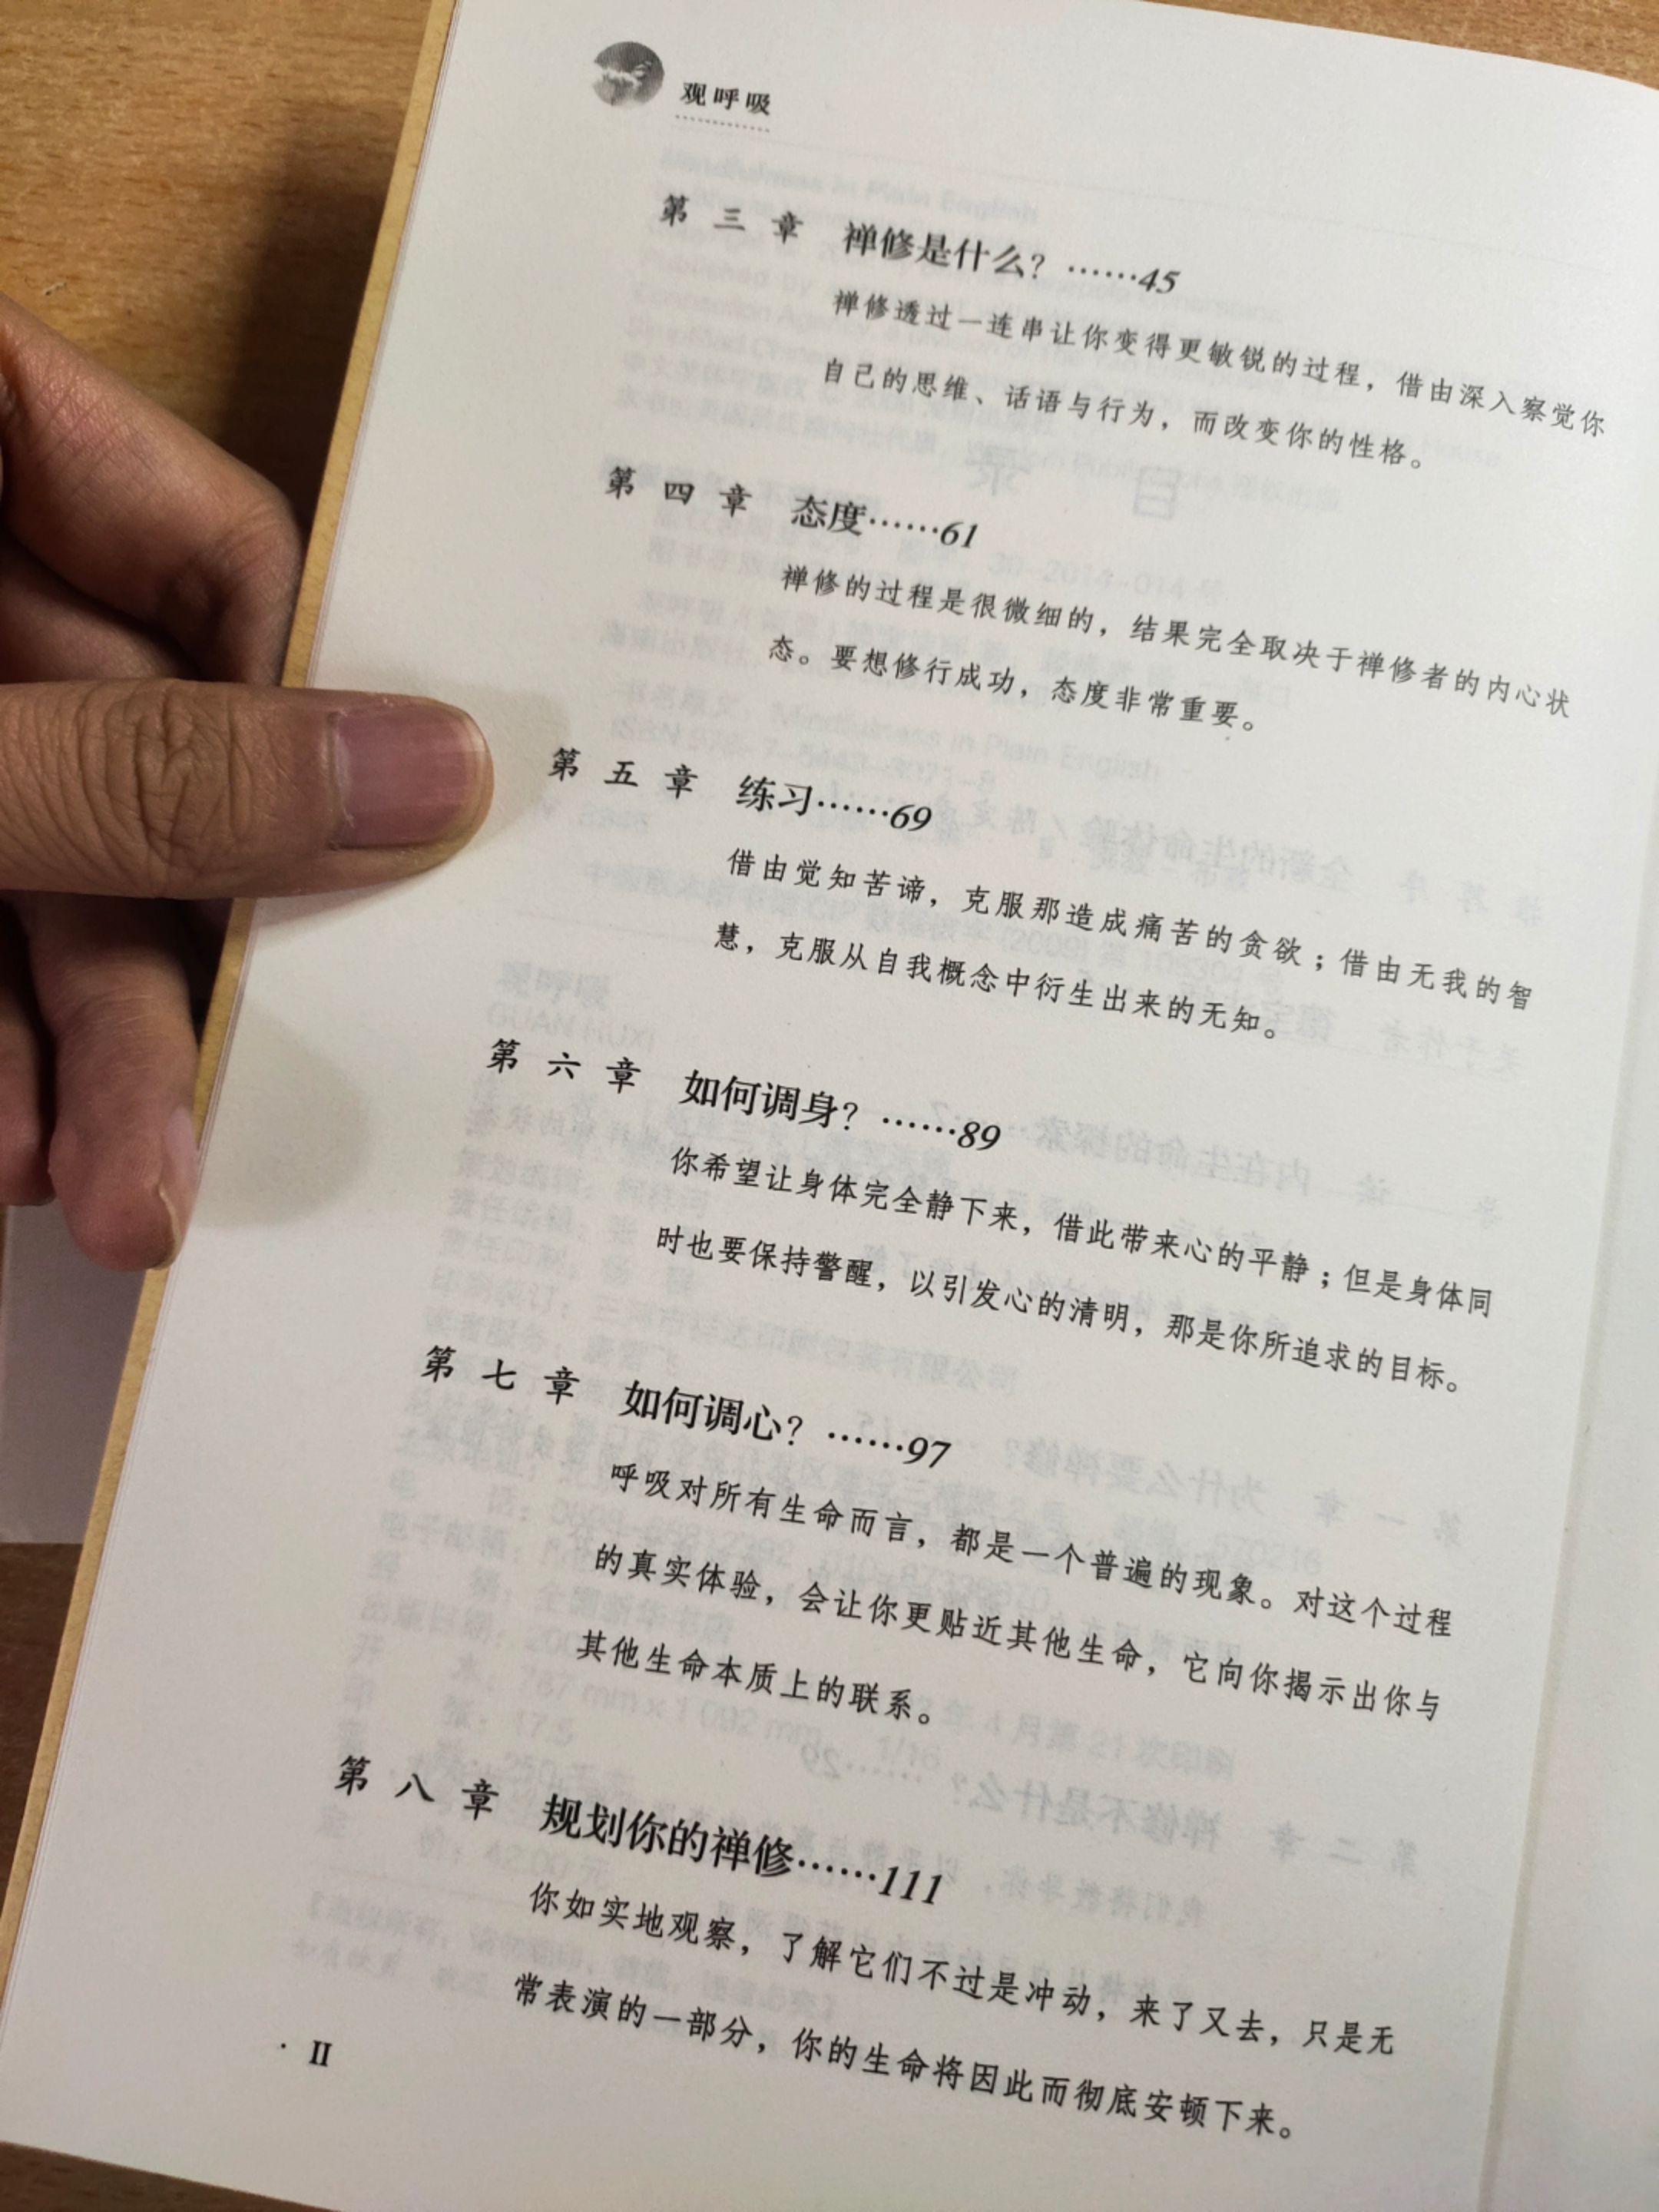 观呼吸
第三章 禅修是什么？……45
禅修透过一连串让你变得更敏锐的过程，借由深入察觉你
自己的思维、话语与行为，而改变你的性格。
第四章 态度……61
禅修的过程是很微细的，结果完全取决于禅修者的内心状
态。要想修行成功，态度非常重要。
第五章 练习……69
借由觉知苦谛，克服那造成痛苦的贪欲；借由无我的智
慧，克服从自我概念中衍生出来的无知。
第六章 如何调身？……89
你希望让身体完全静下来，借此带来心的平静；但是身体同
时也要保持警醒，以引发心的清明，那是你所追求的目标。
第七章 如何调心？……97
呼吸对所有生命而言，都是一个普遍的现象。对这个过程
的真实体验，会让你更贴近其他生命，它向你揭示出你与
其他生命本质上的联系。
第八章 规划你的禅修……111
你如实地观察，了解它们不过是冲动，来了又去，只是无
常表演的一部分，你的生命将因此而彻底安顿下来。
· II